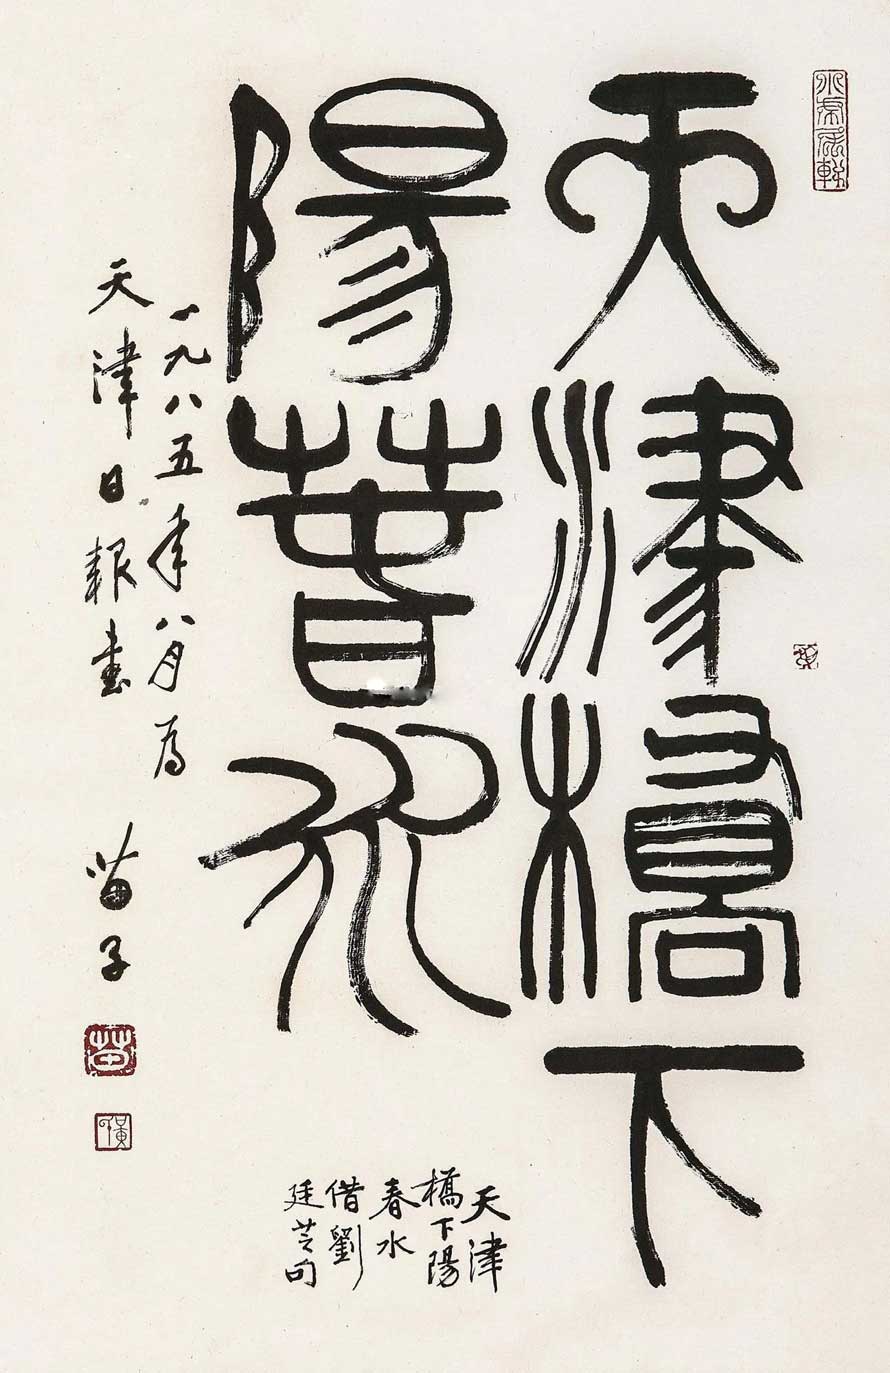 天津橋下
陽春水
天津
橋下陽
春水
借劉
廷芝句
一九八五年八月為
天津日報書
苗子
苗